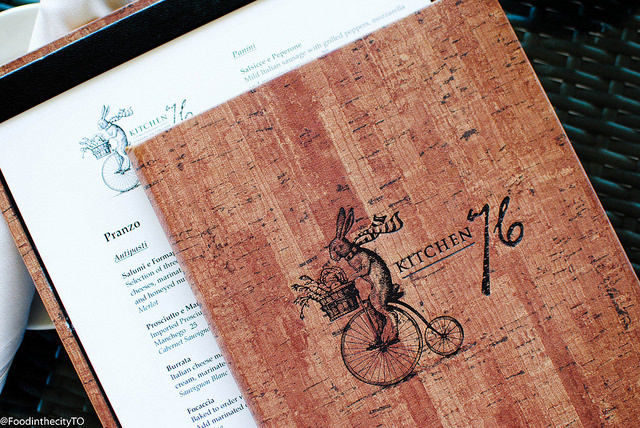 Panini
Salsicce e Peperone
Mild Italian sausage with grilled peppers, mozzarella
KITCHEN 76
Pranzo
Antipasti
Salumi e
Selection of
cheeses,
and honeyed
Merlot
Prosciutto e
Imported
Manchego 25
Cabernet
Burrata
Italian cheese
cream,
Sauvignon Blanc
Focaccia
Baked to order
Add marinated
KITCHEN 76
@FoodinthecityTO